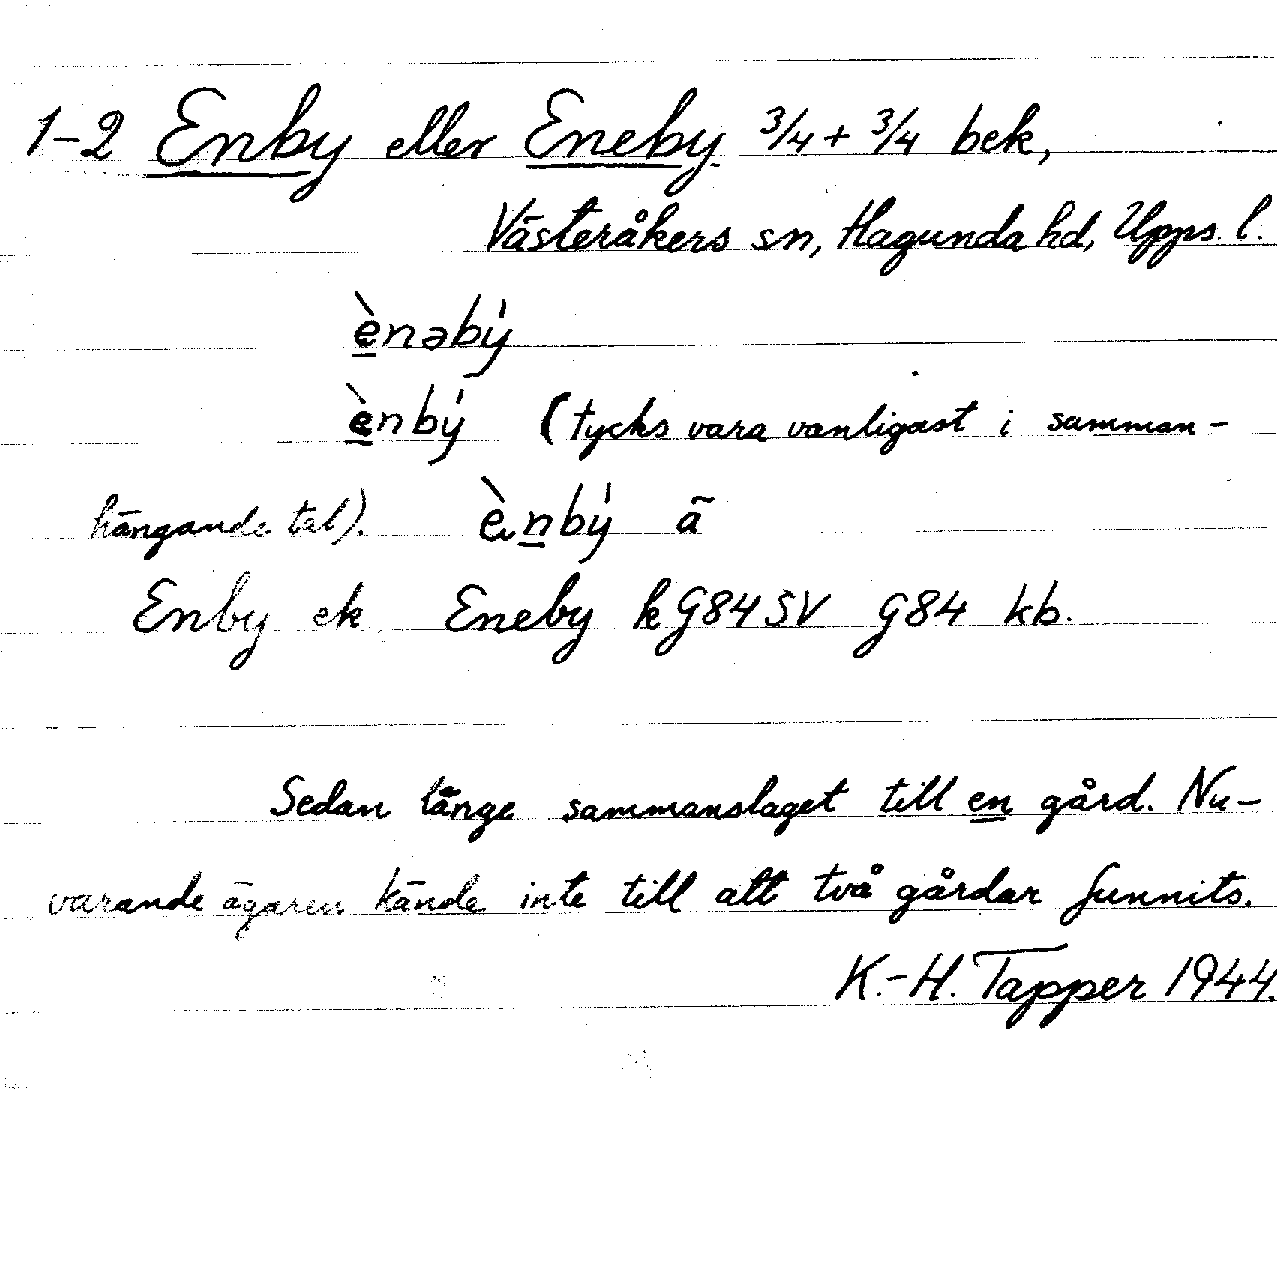 1-2 Enby eller Eneby 3/4 + 3/4 bek,
Västeråkers sn, Hagunda hd, Upps. l.
ènəbý
ènbý (tycks vara vanligast i samman-
hängande tal). ènbý ã
Enby ek Eneby k G84SV G84 kb.
Sedan länge sammanslaget till en gård. Nu-
varande ägaren kände inte till att två gårdar funnits.
K.-H. Tapper 1944.